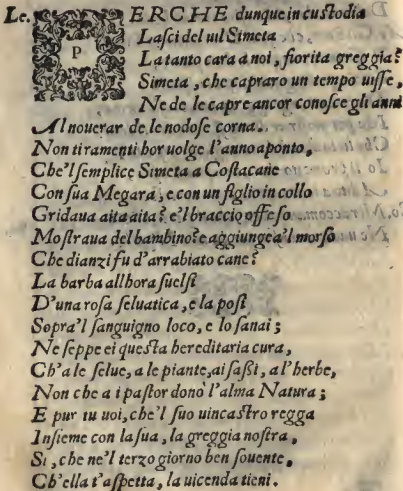 Le. PERCHE dunque in cuſtodia
Laſci del uil Simeta
La tanto cara a noi, fiorita greggia?
Simeta, che capraro un tempo uiſſe,
Ne de le capre ancor conoſce gli anni
Al nouerar de le nodoſe corna.
Non ti ramenti hor uolge l'anno aponto,
Che'l ſemplice Simeta a Coſtacane
Con ſua Megara, e con un figlio in collo
Gridaua aita aita? e'l braccio offeſo
Moſtraua del bambino? e aggiunge a'l morſo
Che dianzi fu d'arrabiato cane?
La barba allhora ſuelſi
D'una roſa ſeluatica, e la poſi
Sopra'l ſanguigno loco, e lo ſanai;
Ne ſeppe ei queſta hereditaria cura,
Ch'a le ſelue, a le piante, ai ſaſſi, a l'herbe,
Non che a i paſtor donò l'alma Natura;
E pur tu uoi, che'l ſuo uincaſtro regga
Inſieme con la ſua, la greggia noſtra,
Si, che ne'l terzo giorno ben ſouente,
Ch'ella t'aſpetta, la uicenda tieni.